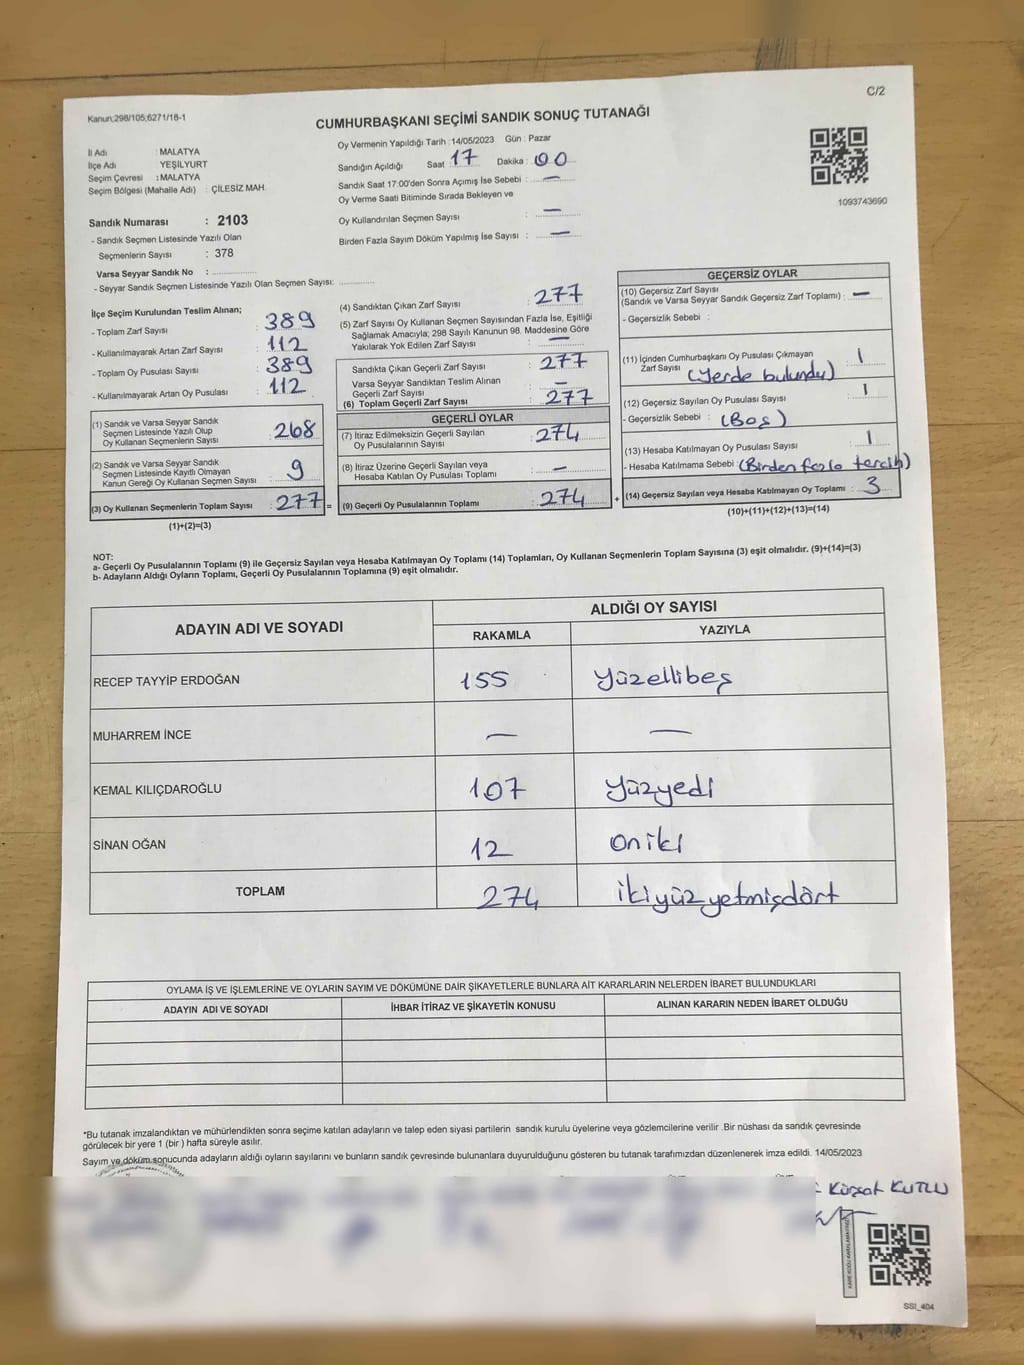 C/2
Kanun;298/105;6271/18-1
CUMHURBAŞKANI SEÇİMİ SANDIK SONUÇ TUTANAĞI
İl Adı : MALATYA
İlçe Adı : YEŞİLYURT
Seçim Çevresi : MALATYA
Seçim Bölgesi (Mahalle Adı) : ÇİLESİZ MAH.
Sandık Numarası : 2103
- Sandık Seçmen Listesinde Yazılı Olan
Seçmenlerin Sayısı : 378
Varsa Seyyar Sandık No :
- Seyyar Sandık Seçmen Listesinde Yazılı Olan Seçmen Sayısı:
Oy Vermenin Yapıldığı Tarih : 14/05/2023 Gün : Pazar
Sandığın Açıldığı Saat : 17 Dakika : 00
Sandık Saat 17:00'den Sonra Açımış İse Sebebi : —
Oy Verme Saati Bitiminde Sırada Bekleyen ve
Oy Kullandırılan Seçmen Sayısı : —
Birden Fazla Sayım Döküm Yapılmış İse Sayısı : —
1093743690
İlçe Seçim Kurulundan Teslim Alınan;
- Toplam Zarf Sayısı : 389
- Kullanılmayarak Artan Zarf Sayısı : 112
- Toplam Oy Pusulası Sayısı : 389
- Kullanılmayarak Artan Oy Pusulası : 112
(1) Sandık ve Varsa Seyyar Sandık
Seçmen Listesinde Yazılı Olup
Oy Kullanan Seçmenlerin Sayısı : 268
(2) Sandık ve Varsa Seyyar Sandık
Seçmen Listesinde Kayıtlı Olmayan
Kanun Gereği Oy Kullanan Seçmen Sayısı : 9
(3) Oy Kullanan Seçmenlerin Toplam Sayısı : 277 =
(1)+(2)=(3)
(4) Sandıktan Çıkan Zarf Sayısı : 277
(5) Zarf Sayısı Oy Kullanan Seçmen Sayısından Fazla İse, Eşitliği
Sağlamak Amacıyla; 298 Sayılı Kanunun 98. Maddesine Göre
Yakılarak Yok Edilen Zarf Sayısı : —
Sandıkta Çıkan Geçerli Zarf Sayısı : 277
Varsa Seyyar Sandıktan Teslim Alınan
Geçerli Zarf Sayısı : —
(6) Toplam Geçerli Zarf Sayısı : 277
GEÇERLİ OYLAR
(7) İtiraz Edilmeksizin Geçerli Sayılan
Oy Pusulalarının Sayısı : 274
(8) İtiraz Üzerine Geçerli Sayılan veya
Hesaba Katılan Oy Pusulası Toplamı : —
(9) Geçerli Oy Pusulalarının Toplamı : 274 +
GEÇERSİZ OYLAR
(10) Geçersiz Zarf Sayısı
(Sandık ve Varsa Seyyar Sandık Geçersiz Zarf Toplamı) : —
- Geçersizlik Sebebi :
(11) İçinden Cumhurbaşkanı Oy Pusulası Çıkmayan
Zarf Sayısı : 1
(Yerde bulundu)
(12) Geçersiz Sayılan Oy Pusulası Sayısı : 1
- Geçersizlik Sebebi : (Boş)
(13) Hesaba Katılmayan Oy Pusulası Sayısı : 1
- Hesaba Katılmama Sebebi : (Birden fazla tercih)
(14) Geçersiz Sayılan veya Hesaba Katılmayan Oy Toplamı : 3
(10)+(11)+(12)+(13)=(14)
NOT:
a- Geçerli Oy Pusulalarının Toplamı (9) ile Geçersiz Sayılan veya Hesaba Katılmayan Oy Toplamı (14) Toplamları, Oy Kullanan Seçmenlerin Toplam Sayısına (3) eşit olmalıdır. (9)+(14)=(3)
b- Adayların Aldığı Oyların Toplamı, Geçerli Oy Pusulalarının Toplamına (9) eşit olmalıdır.
ADAYIN ADI VE SOYADI
ALDIĞI OY SAYISI
RAKAMLA YAZIYLA
RECEP TAYYİP ERDOĞAN 155 Yüzellibeş
MUHARREM İNCE — —
KEMAL KILIÇDAROĞLU 107 Yüzyedi
SİNAN OĞAN 12 oniki
TOPLAM 274 ikiyüzyetmişdört
OYLAMA İŞ VE İŞLEMLERİNE VE OYLARIN SAYIM VE DÖKÜMÜNE DAİR ŞİKAYETLERLE BUNLARA AİT KARARLARIN NELERDEN İBARET BULUNDUKLARI
ADAYIN ADI VE SOYADI İHBAR İTİRAZ VE ŞİKAYETİN KONUSU ALINAN KARARIN NEDEN İBARET OLDUĞU
*Bu tutanak imzalandıktan ve mühürlendikten sonra seçime katılan adayların ve talep eden siyasi partilerin sandık kurulu üyelerine veya gözlemcilerine verilir .Bir nüshası da sandık çevresinde
görülecek bir yere 1 (bir ) hafta süreyle asılır.
Sayım ve döküm sonucunda adayların aldığı oyların sayılarını ve bunların sandık çevresinde bulunanlara duyurulduğunu gösteren bu tutanak tarafımızdan düzenlenerek imza edildi. 14/05/2023
Kürşat KUTLU
SSI_404